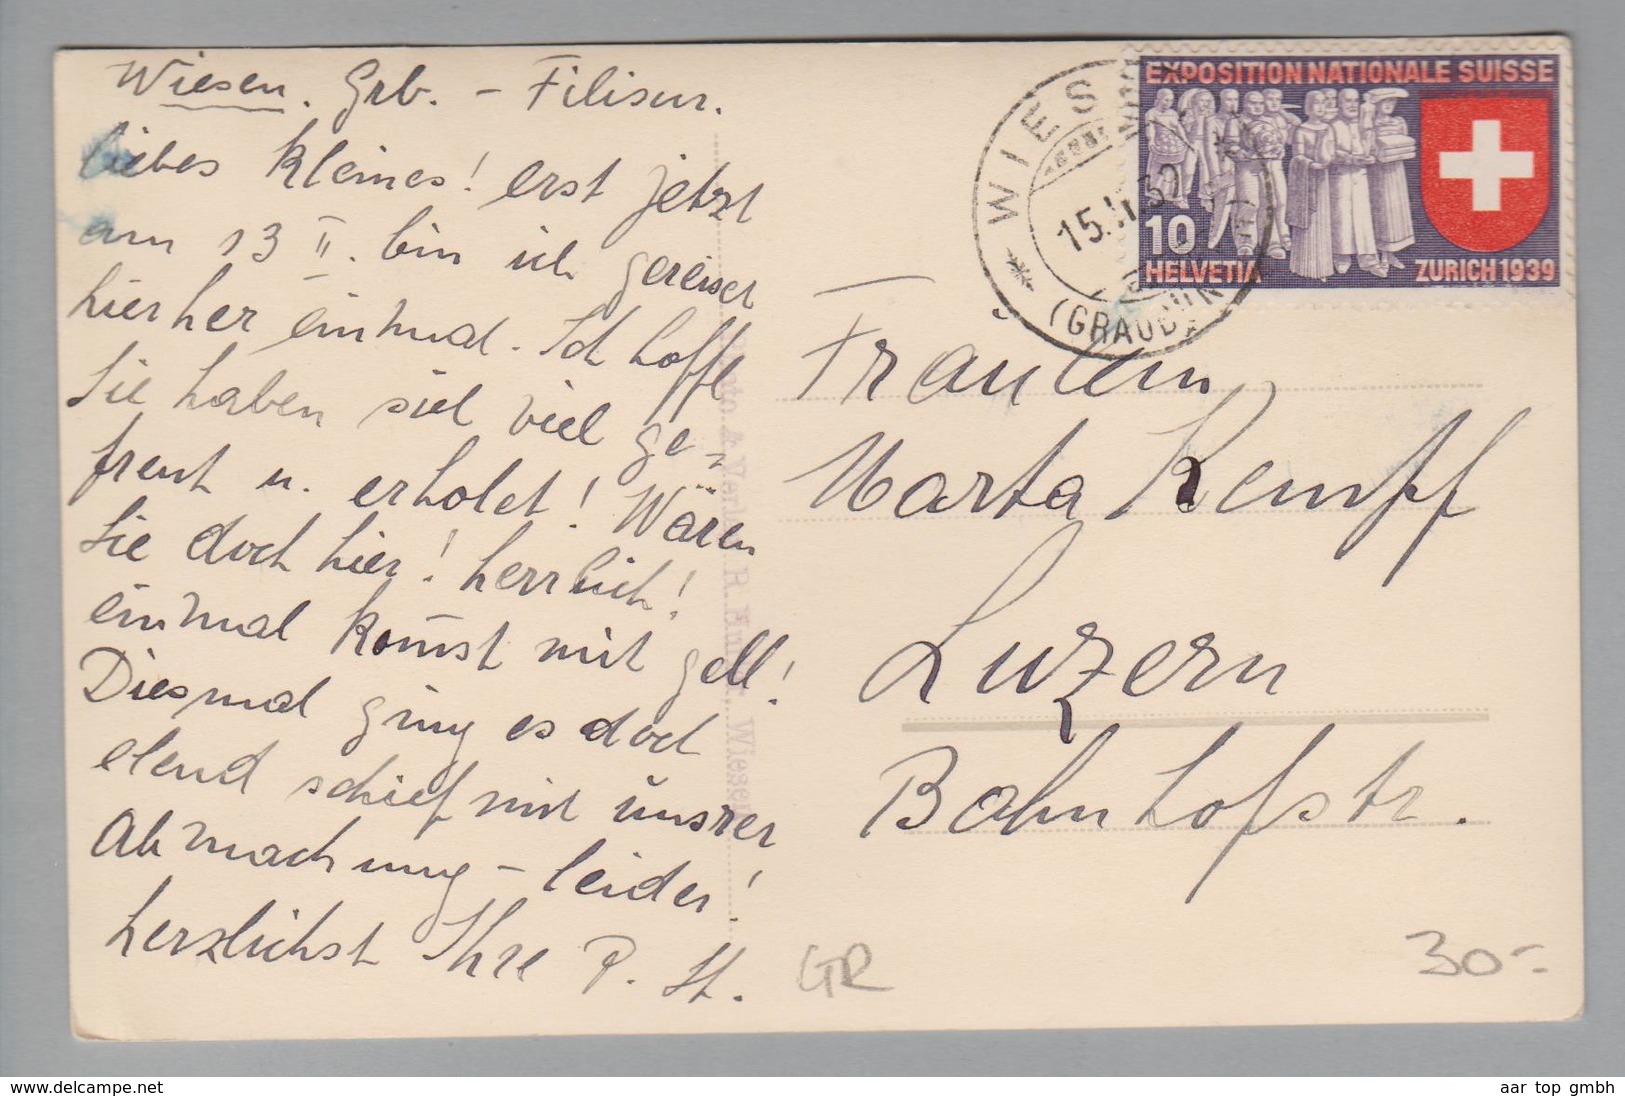 Wiesen. Grb. - Filisur.
liebes Kleines! erst jetzt
am 13 II. bin ich gereiset
hierher einmal. Ich hoffe
Sie haben viel ge-
freut u. erholet! Wären
Sie doch hier! herrlich!
einmal komst mit gell!
Diesmal ging es doch
elend schief mit unsrer
Abmachung - leider!
herzlichst Ihre P. St.
Photo. & Verl. R. Wiesen
WIESEN
15.II.39
(GRAUBÜNDEN)
EXPOSITION NATIONALE SUISSE
10
HELVETIA
ZURICH 1939
Fräulein
Marta Kempf
Luzern
Bahnhofstr.
GR
30.-
www.delcampe.net
aar top gmbh